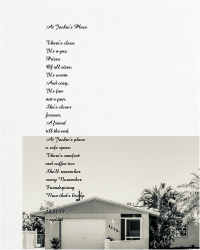 At Jackie's Place
There's clear
It's a yes.
Prizes
Of all sizes.
It's warm
And cozy.
It's fun
not a purr.
She's clever
forever
A friend
till the end.
At Jackie's place
a safe space.
There's comfort
and coffee too
She'll remember
every November
Friendsgiving
Now that's living.